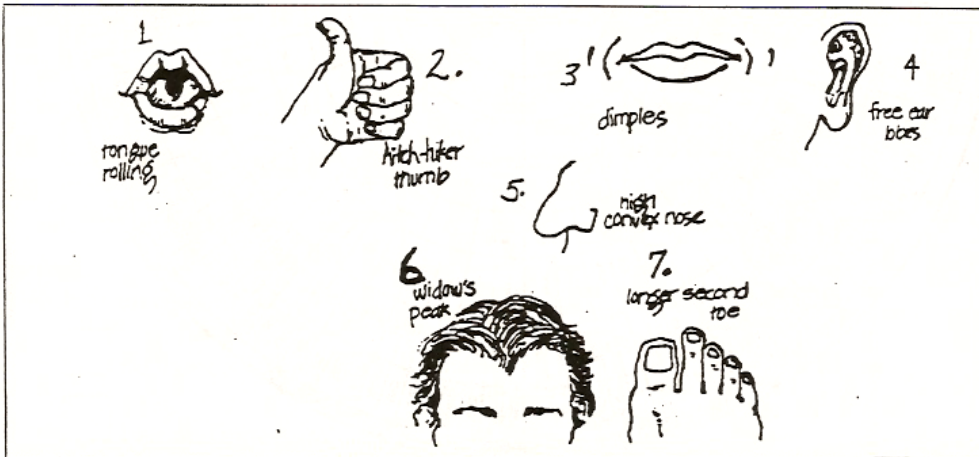 1
tongue
rolling
2.
hitch-hiker
thumb
3
dimples
4
free ear
lobes
5.
high
convex nose
6
widow's
peak
7.
longer second
toe